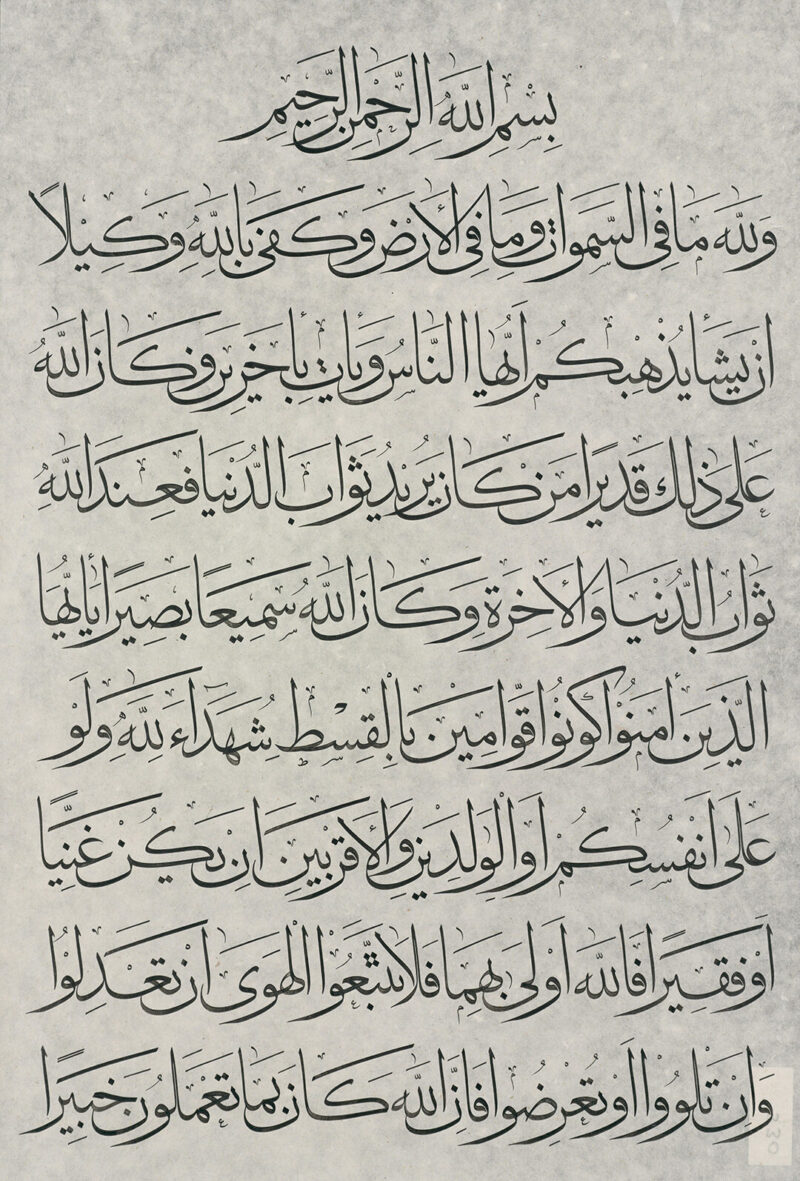 بِسْمِ اللهِ الرَّحْمنِ الرَّحِيمِ
وَلِلّٰهِ مَا فِى السَّمٰوَاتِ وَمَا فِى الْاَرْضِ وَكَفٰى بِاللّٰهِ وَكِيْلًا
اِنْ يَشَأْ يُذْهِبْكُمْ اَيُّهَا النَّاسُ وَيَأْتِ بِاٰخَرِيْنَ وَكَانَ اللّٰهُ
عَلٰى ذٰلِكَ قَدِيْرًا مَنْ كَانَ يُرِيْدُ ثَوَابَ الدُّنْيَا فَعِنْدَ اللّٰهِ
ثَوَابُ الدُّنْيَا وَالْاٰخِرَةِ وَكَانَ اللّٰهُ سَمِيْعًا بَصِيْرًا يٰاَيُّهَا
الَّذِيْنَ اٰمَنُوْا كُوْنُوْا قَوَّامِيْنَ بِالْقِسْطِ شُهَدَاءَ لِلّٰهِ وَلَوْ
عَلٰى اَنْفُسِكُمْ اَوِ الْوٰلِدَيْنِ وَالْاَقْرَبِيْنَ اِنْ يَكُنْ غَنِيًّا
اَوْ فَقِيْرًا فَاللّٰهُ اَوْلٰى بِهِمَا فَلَا تَتَّبِعُوا الْهَوٰى اَنْ تَعْدِلُوْا
وَاِنْ تَلْوُوْا اَوْ تُعْرِضُوْا فَاِنَّ اللّٰهَ كَانَ بِمَا تَعْمَلُوْنَ خَبِيْرًا